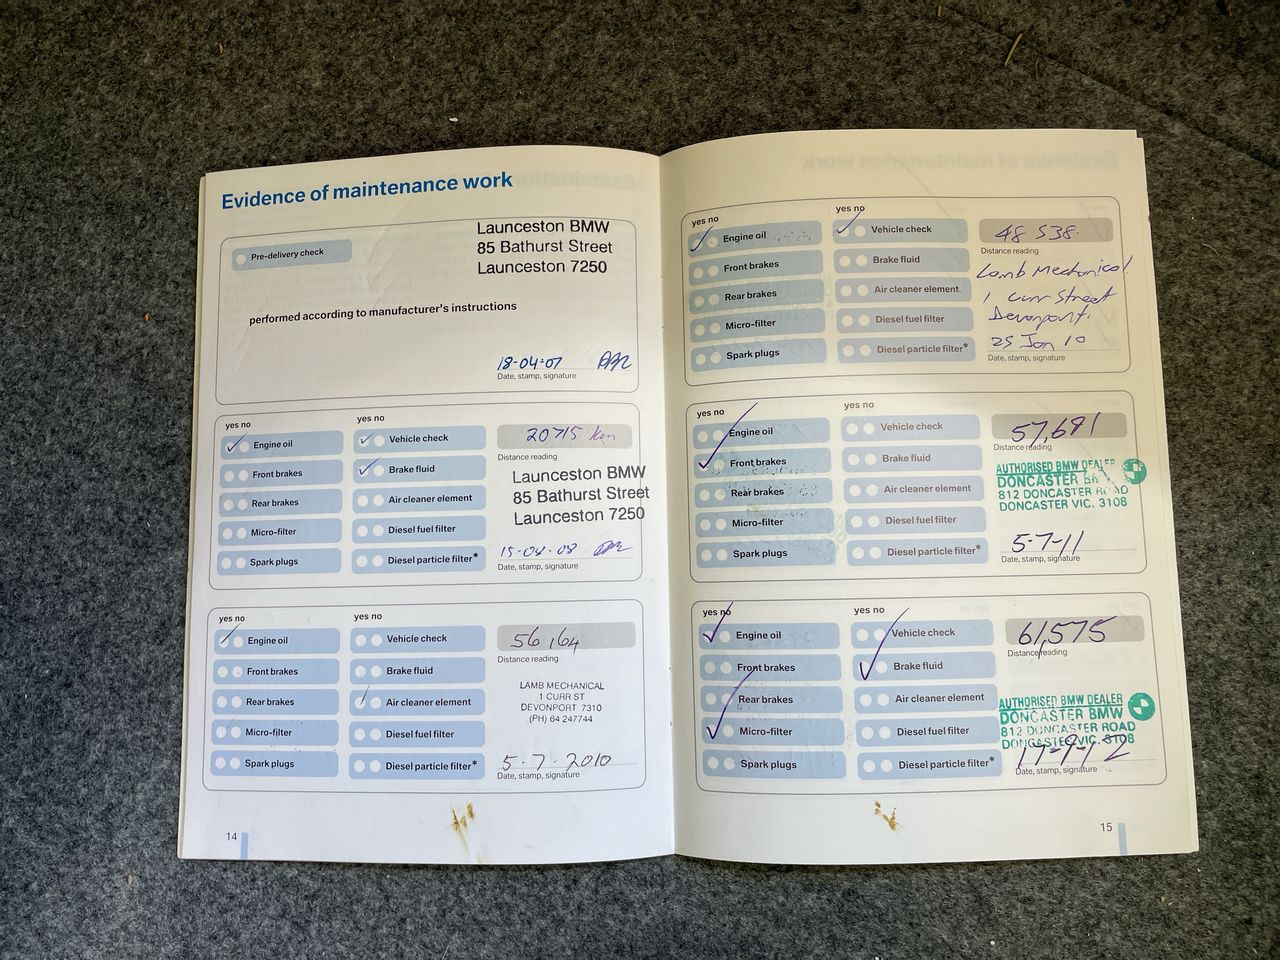 Evidence of maintenance work
Pre-delivery check
Launceston BMW
85 Bathurst Street
Launceston 7250
performed according to manufacturer's instructions
18-04-07
Date, stamp, signature
yes no
yes no
Engine oil
Vehicle check
20715 km
Distance reading
Front brakes
Brake fluid
Launceston BMW
85 Bathurst Street
Launceston 7250
Rear brakes
Air cleaner element
Micro-filter
Diesel fuel filter
15-04-08
Spark plugs
Diesel particle filter*
Date, stamp, signature
yes no
yes no
Engine oil
Vehicle check
56164
Distance reading
Front brakes
Brake fluid
LAMB MECHANICAL
1 CURR ST
DEVONPORT 7310
(PH) 64 247744
Rear brakes
Air cleaner element
Micro-filter
Diesel fuel filter
5-7-2010
Spark plugs
Diesel particle filter*
Date, stamp, signature
14
yes no
yes no
Engine oil
Vehicle check
48 538.
Distance reading
Front brakes
Brake fluid
Lamb Mechanical
1 Curr Street
Devonport.
25 Jan 10
Rear brakes
Air cleaner element
Micro-filter
Diesel fuel filter
Spark plugs
Diesel particle filter*
Date, stamp, signature
yes no
yes no
Engine oil
Vehicle check
57,691
Distance reading
Front brakes
Brake fluid
AUTHORISED BMW DEALER
DONCASTER BMW
812 DONCASTER ROAD
DONCASTER VIC. 3108
Rear brakes
Air cleaner element
Micro-filter
Diesel fuel filter
5-7-11
Spark plugs
Diesel particle filter*
Date, stamp, signature
yes no
yes no
Engine oil
Vehicle check
61,575
Distance reading
Front brakes
Brake fluid
AUTHORISED BMW DEALER
DONCASTER BMW
812 DONCASTER ROAD
DONCASTER VIC. 3108
Rear brakes
Air cleaner element
Micro-filter
Diesel fuel filter
Spark plugs
Diesel particle filter*
Date, stamp, signature
15